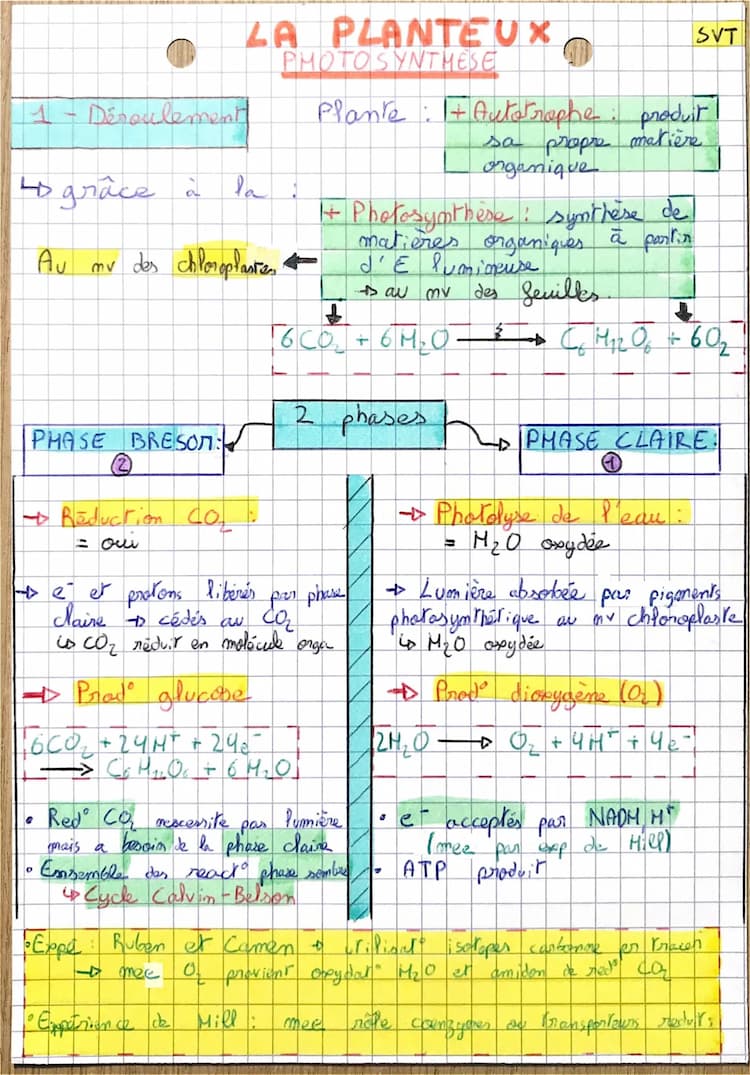 LA PLANTEUX
SVT
PHOTOSYNTHÈSE
1 - Déroulement
Plante : + Autotrophe : produit
sa propre matière
organique
↳ grâce à la :
+ Photosynthèse : synthèse de
matières organiques à partir
d'E lumineuse
→ au nv des feuilles.
Au nv des chloroplastes
6CO₂ + 6H₂O → C₆H₁₂O₆ + 6O₂
2 phases
PHASE BRESON:
2
→ Réduction CO₂ :
= oui
→ e⁻ et protons libérés par phase
claire → cédés au CO₂
↳ CO₂ réduit en molécule orga
→ Prod° glucose
6CO₂ + 24H⁺ + 24e⁻
→ C₆H₁₂O₆ + 6H₂O
• Red° CO₂ nescessite pas lumière
mais a besoin de la phase claire
• Ensemble des react° phase sombre
↳ Cycle Calvin-Belson
PHASE CLAIRE:
1
→ Photolyse de l'eau :
= H₂O oxydée
→ Lumière absorbée par pigments
photosynthétique au nv chloroplaste
↳ H₂O oxydée
→ Prod° dioxygène (O₂)
2H₂O → O₂ + 4H⁺ + 4e⁻
• e⁻ acceptés par NADH, H⁺
(mee par exp de Hill)
• ATP produit
• Expé : Ruben et Camen → utilisat° isotopes carbonne pr tracer
→ mee O₂ provient oxydat° H₂O et amidon de red° CO₂
• Expérience de Hill : mee rôle coenzymes ou transporteurs réduits